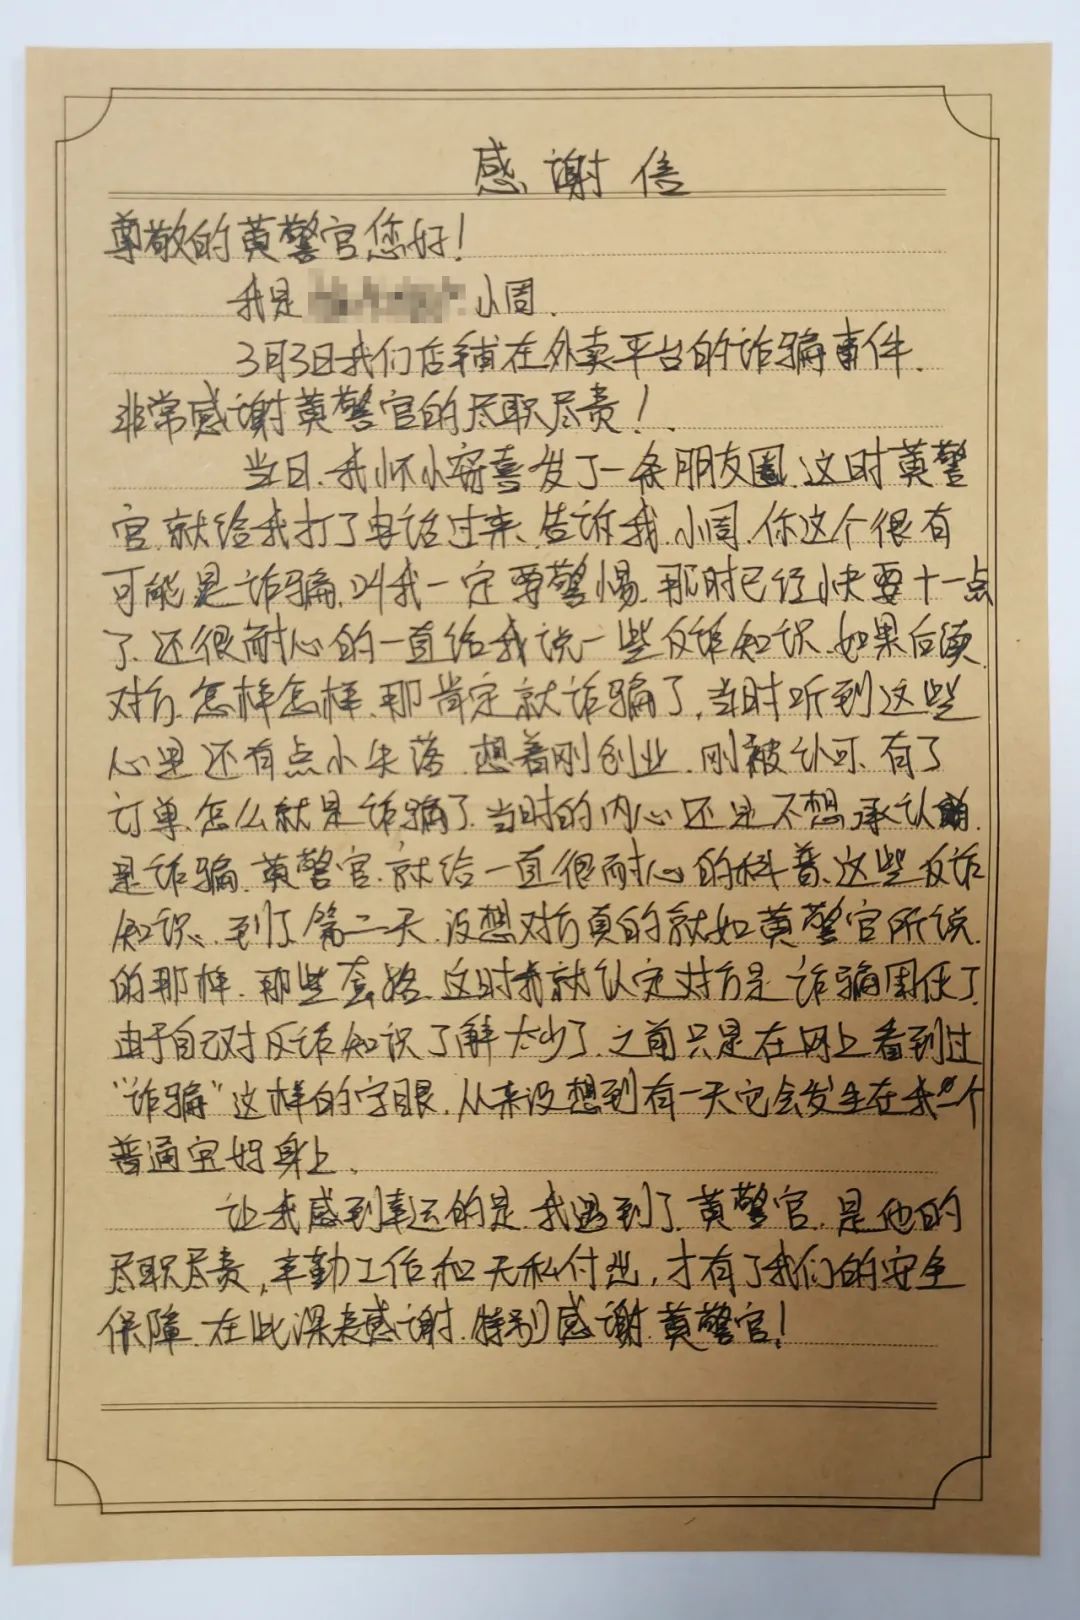 感谢信
尊敬的黄警官您好！
我是 小周.
3月3日我们店铺在外卖平台的诈骗事件.
非常感谢黄警官的尽职尽责！
当日.我怀小窃喜发了一条朋友圈.这时黄警
官.就给我打了电话过来、告诉我.小周.你这个很有
可能是诈骗.叫我一定要警惕.那时已经快要十一点
了.还很耐心的一直给我说一些反诈知识.如果后续
对方.怎样怎样.那肯定就诈骗了.当时听到这些
心里还有点小失落.想着刚创业.刚被认可.有了
订单.怎么就是诈骗了.当时的内心还是不想承认
是诈骗.黄警官.就给一直很耐心的科普、这些反诈
知识、到了第二天.没想对方真的就如黄警官所说.
的那样.那些套路.这时我就认定对方是诈骗团伙了.
由于自己对反诈知识了解太少了.之前只是在网上看到过
“诈骗”这样的字眼.从来没想到有一天它会发生在我一个
普通宝妈身上.
让我感到幸运的是.我遇到了黄警官.是他的
尽职尽责,辛勤工作和无私付出,才有了我们的安全
保障.在此深表感谢.特别感谢.黄警官!